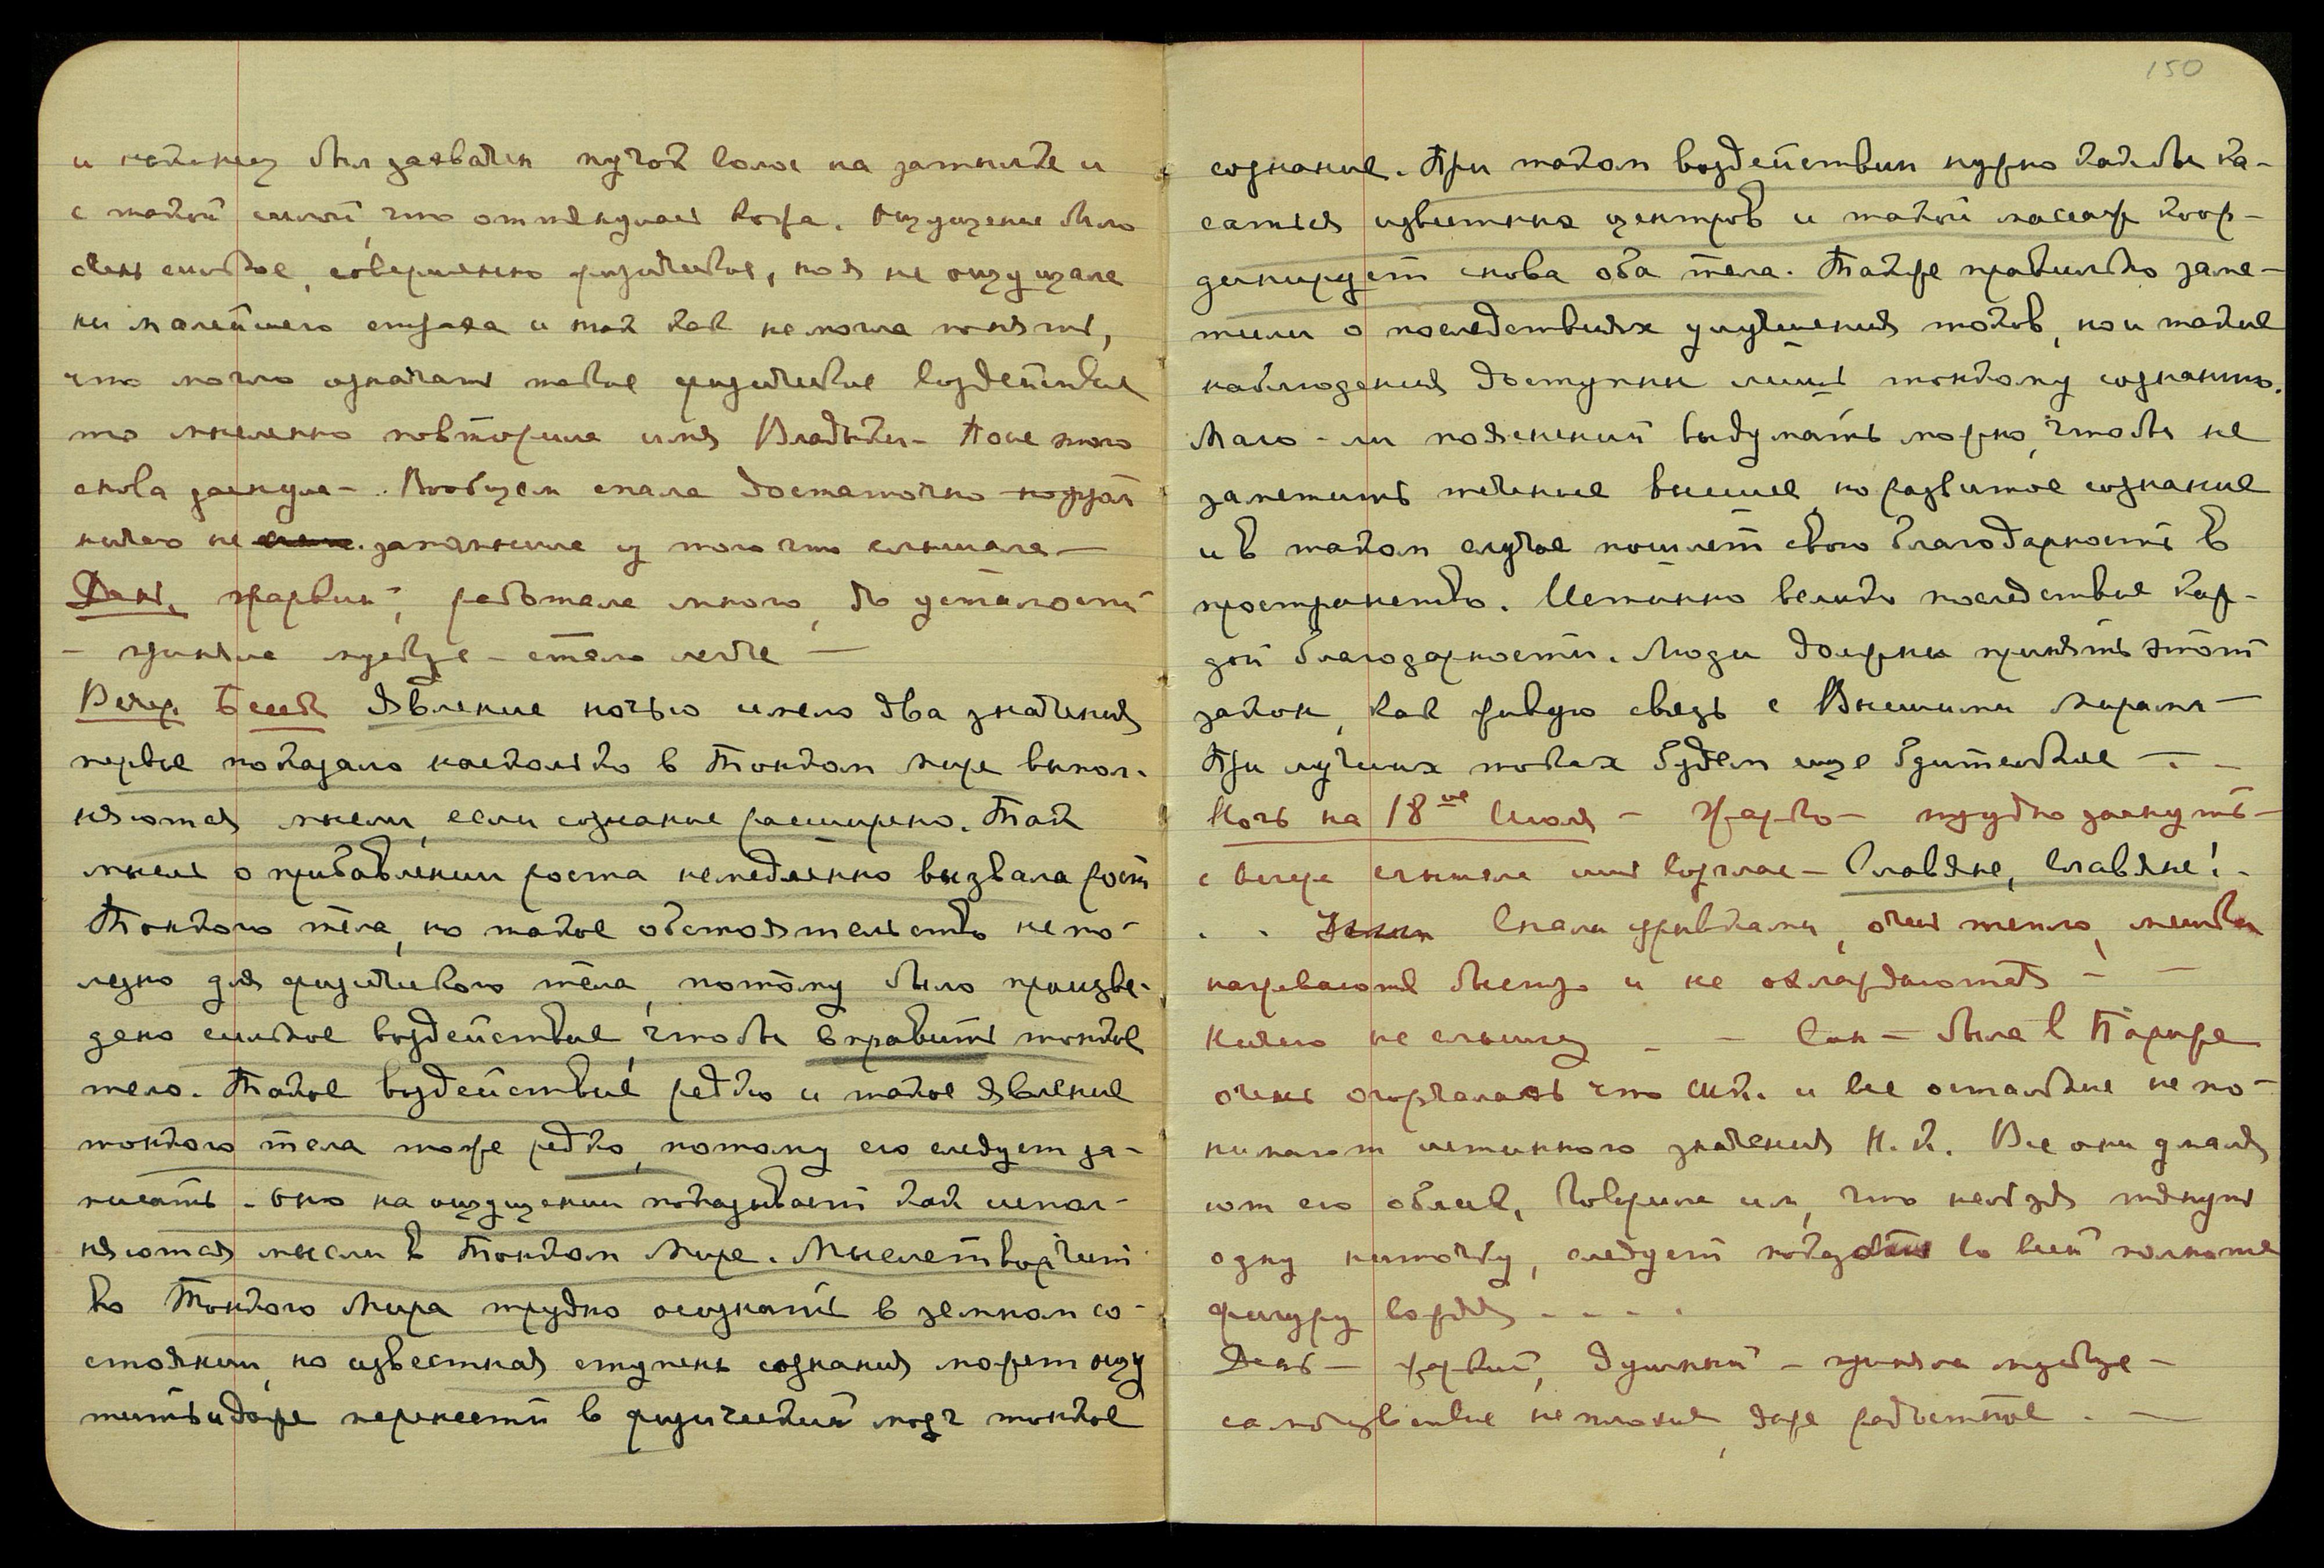 и наконец был захвачен пучок волос на затылке и
с такой силой, что оттянулась кожа. Ощущение было
очень сильное, совершенно физическое, но я не ощущала
ни малейшего страха и так как не могла понять,
что могло означать такое физическое воздействие
то мысленно повторила имя Владыки – После этого
снова заснула –. Вообщем спала достаточно – но
ничего не запомнила из того что слышала –
День, жаркий, работала много, до усталости
– приняла – стало легче –
Вечер. Беседа Явление ночью имело два значения
первое показало насколько в Тонком мире выпол-
няются мысли, если сознание расширено. Так
мысль о прибавлении роста немедленно вызвала рост
Тонкого тела, но такое обстоятельство непо-
лезно для физического тела, потому было произве-
дено сильное воздействие, чтобы вправить тонкое
тело. Такое воздействие редко и такое явление
тонкого тела тоже редко, потому его следует за-
писать. Оно на ощущении показывает как испол-
няются мысли в Тонком Мире. Мыслетворчест
во Тонкого Мира трудно осознать в земном со-
стоянии, но известная ступень сознания может ощу
тить и даже перенести в физический мозг тонкое
150
сознание. При таком воздействии нужно как бы ка-
саться известных центров и такой массаж коор-
динирует снова оба тела. Также правильно заме-
тили о последствиях улучшения токов, но и такие
наблюдения доступны лишь тонкому сознанию.
Мало-ли пояснений выдумать можно, чтобы не
заметить течение высшее, но развитое сознание
и в таком случае пошлёт свою благодарность в
пространство. Истинно велико последствие каж-
дой благодарности. Люди должны принять этот
закон, как живую связь с Высшими Мирами –
При лучших токах будем еще бдительнее – . –
Ночь на 18ое Июля – Жарко – трудно заснуть –
с вечера слышала лишь возглас – Славяне, Славяне! .
. . Спала урывками, очень тепло, мешки
нагреваются быстро и не охлаждаются – –
Ничего не слышу – – Сон – была в Париже
очень огорчалась что Шк. и все остальные не по-
нимают истинного значения Н.К. Все они умаля
ют его облик, говорила им, что нельзя тянуть
одну ниточку, следует показать во всей полноте
фигуру вождя – . . .
День – жаркий, душный – приняла –
самочувствие неплохое, даже радостное . –